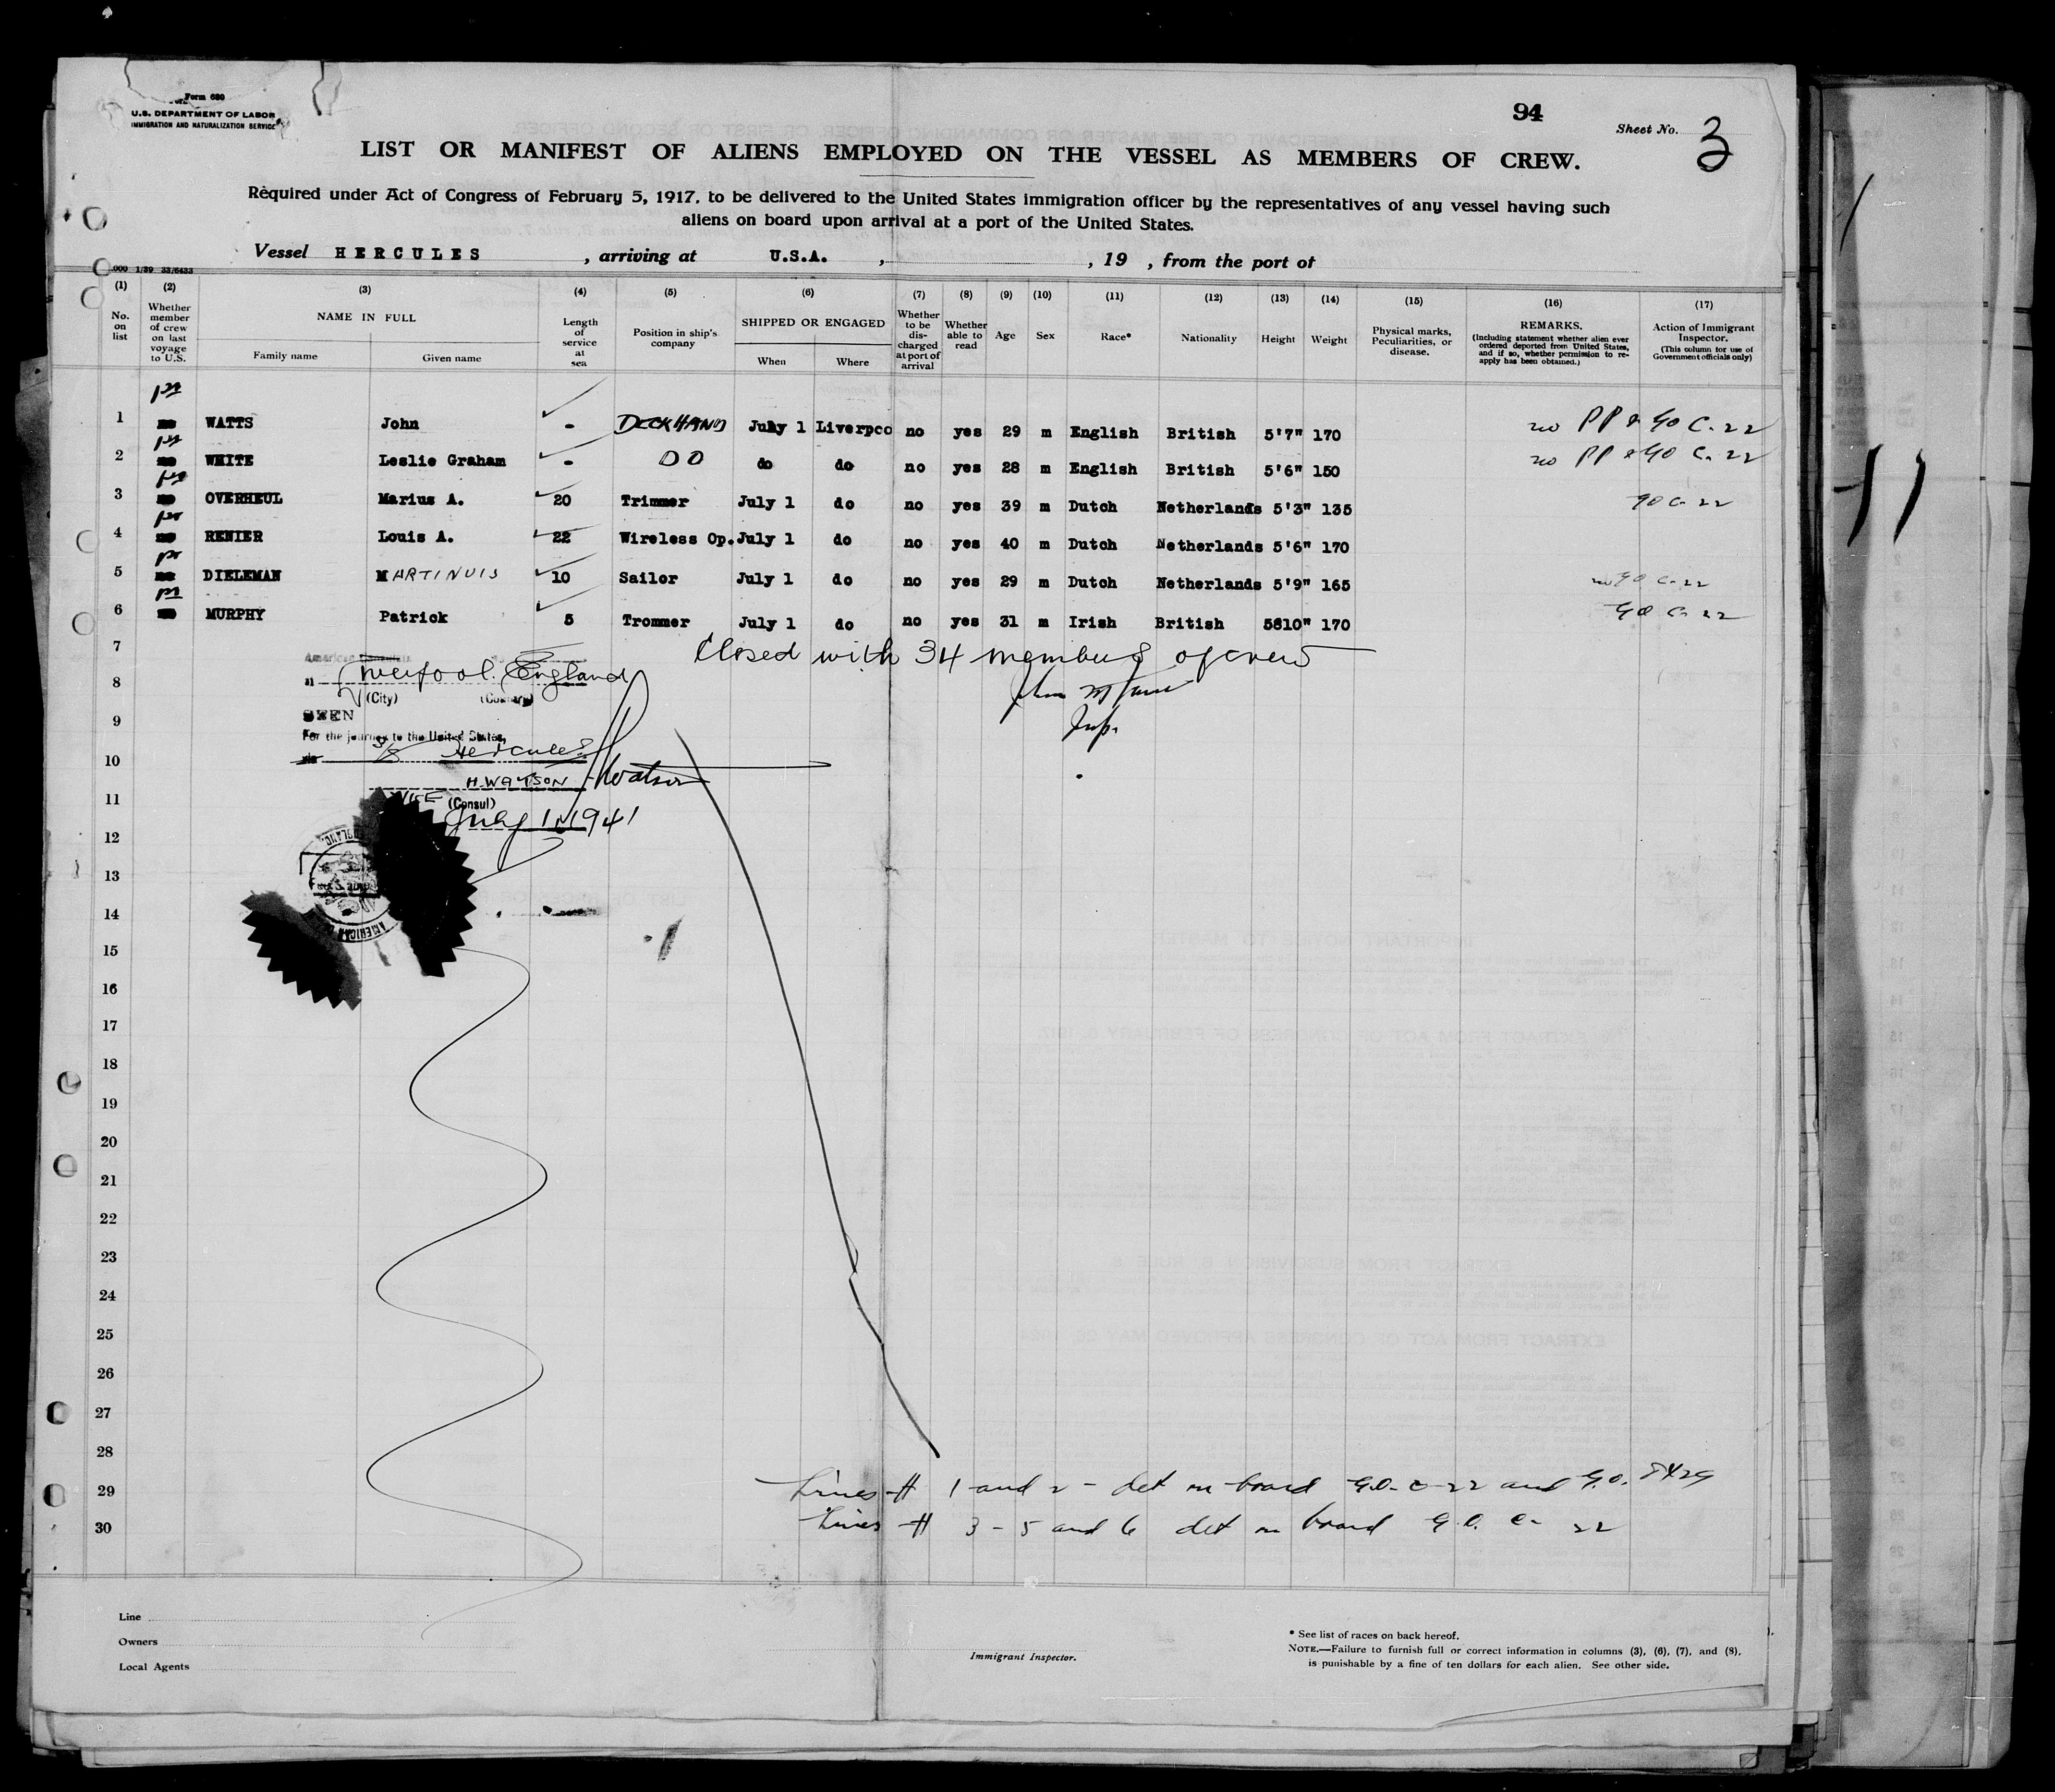 Form 680
U.S. DEPARTMENT OF LABOR
IMMIGRATION AND NATURALIZATION SERVICE
94
Sheet No. 3
LIST OR MANIFEST OF ALIENS EMPLOYED ON THE VESSEL AS MEMBERS OF CREW.
Required under Act of Congress of February 5, 1917, to be delivered to the United States immigration officer by the representatives of any vessel having such
aliens on board upon arrival at a port of the United States.
Vessel HERCULES , arriving at U.S.A. , , 19 , from the port of
000 1/39 33/6433
(1) (2) (3) (4) (5) (6) (7) (8) (9) (10) (11) (12) (13) (14) (15) (16) (17)
No. on list
Whether member of crew on last voyage to U.S.
NAME IN FULL
Family name Given name
Length of service at sea
Position in ship's company
SHIPPED OR ENGAGED
When Where
Whether to be discharged at port of arrival
Whether able to read
Age
Sex
Race*
Nationality
Height
Weight
Physical marks, Peculiarities, or disease.
REMARKS.
(Including statement whether alien ever ordered deported from United States, and if so, whether permission to re-apply has been obtained.)
Action of Immigrant Inspector.
(This column for use of Government officials only)
1 WATTS John - DECKHAND July 1 Liverpoo no yes 29 m English British 5'7" 170 no PP & GO C-22
2 WHITE Leslie Graham - DO do do no yes 28 m English British 5'6" 150 no PP & GO C-22
3 OVERHEUL Marius A. 20 Trimmer July 1 do no yes 39 m Dutch Netherlands 5'3" 135 GO C-22
4 RENIER Louis A. 22 Wireless Op. July 1 do no yes 40 m Dutch Netherlands 5'6" 170
5 DIELEMAN MARTINUIS 10 Sailor July 1 do no yes 29 m Dutch Netherlands 5'9" 165 no GO C-22
6 MURPHY Patrick 5 Trommer July 1 do no yes 31 m Irish British 5810" 170 GO C-22
7 Closed with 34 members of crew
American
at Liverpool England
8 (City) (Country)
9 SEEN
Insp.
For the journey to the United States,
10 via S/S Hercules
H. WATSON HWatson
11 VICE (Consul)
July 1 1941
12
13
14
15
16
17
18
19
20
21
22
23
24
25
26
27
28
29 Lines # 1 and 2 - det on board G.O. C-22 and G.O. 8429
30 Lines # 3 - 5 and 6 det on board G.O. C- 22
Line
Owners
Local Agents
Immigrant Inspector.
* See list of races on back hereof.
NOTE.—Failure to furnish full or correct information in columns (3), (6), (7), and (8),
is punishable by a fine of ten dollars for each alien. See other side.